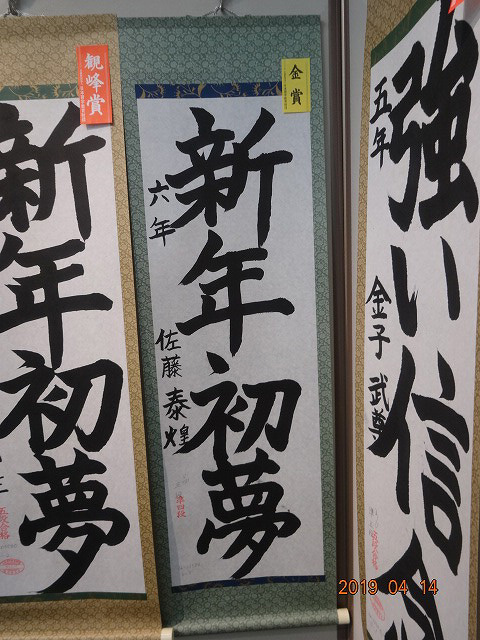 強い信念
五年
金子 武尊
金賞
新年初夢
六年
佐藤 泰煌
第四段
観峰賞
新年初夢
2019 04 14